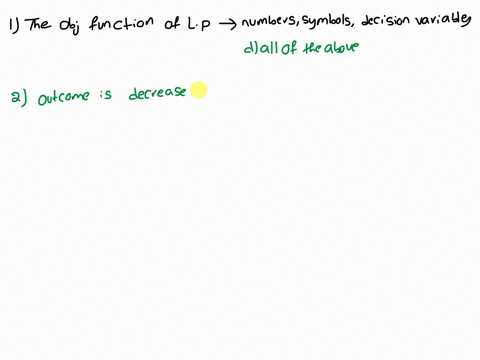 1) The obj function of L.P → numbers, symbols, decision variables
d) all of the above
2) outcome is decrease